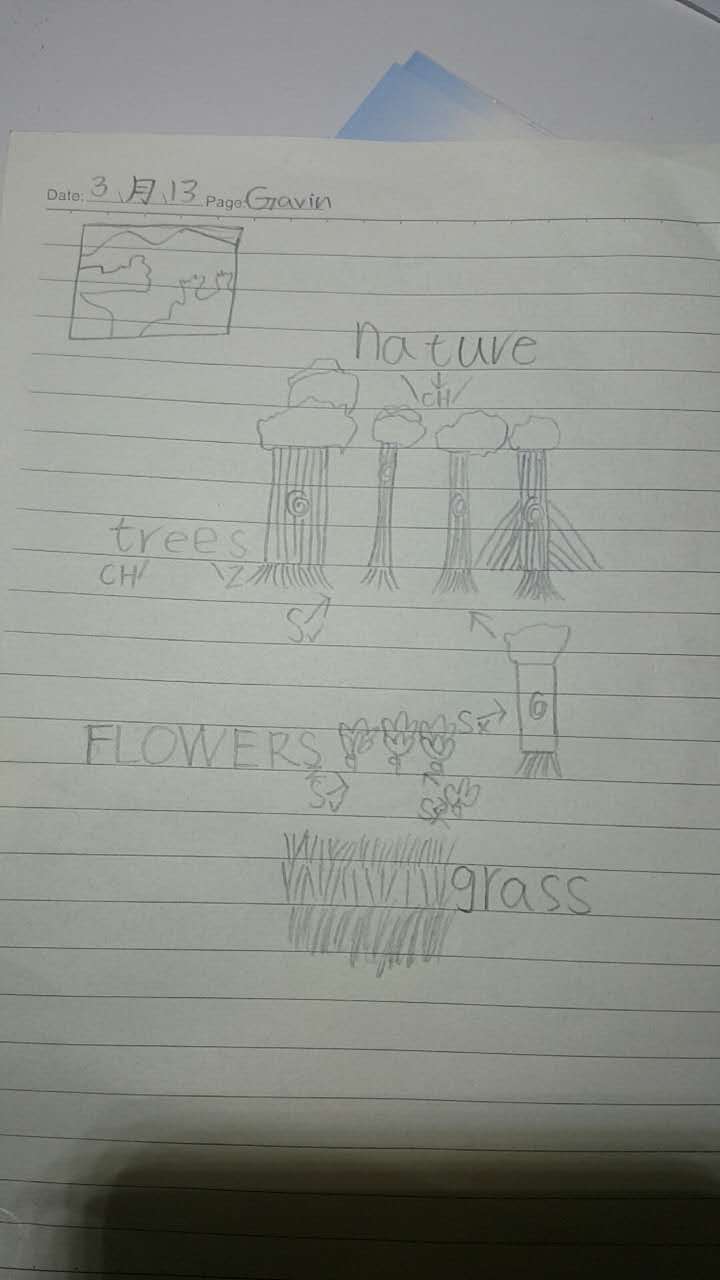 Date: 3月13 Page: Gavin
nature
CH
trees
CH Z
S
S
FLOWERS
S
grass